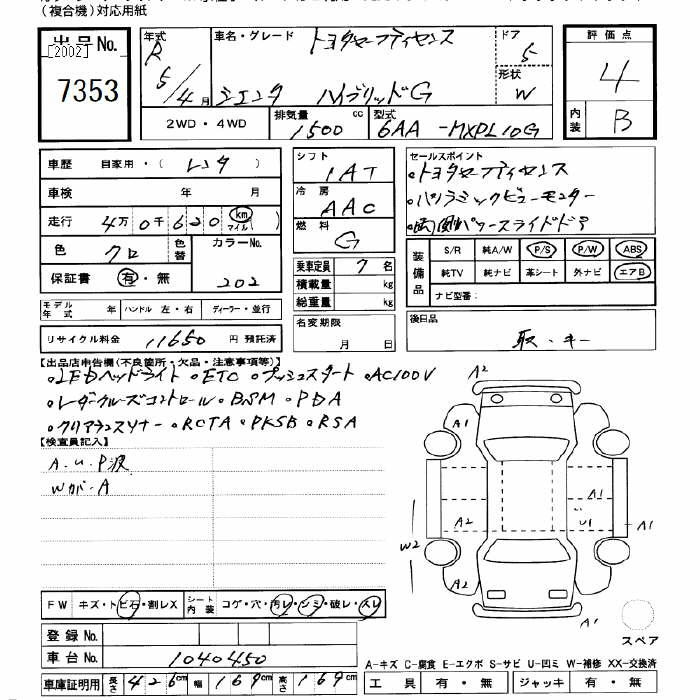 (複合機)対応用紙
出品No.
[2002]
7353
年式 車名・グレード トヨタセーフティセンス ドア 5
R 5/4月 シエンタ ハイブリッドG 形状 W
2WD・4WD 排気量 1500 cc 型式 6AA-MXPL10G
評価点
4
内装 B
車歴 自家用・(レンタ)
車検 年 月
走行 4万0千620 km マイル( )
色 クロ 色替 カラーNo. 202
保証書 有・無
モデル年式 年 ハンドル 左・右 ディーラー・並行
リサイクル料金 11650 円 預託済
シフト 1AT
冷房 AAC
燃料 G
乗車定員 7名
積載量 kg
総重量 kg
名変期限
月 日
セールスポイント
・トヨタセーフティセンス
・パノラミックビューモニター
・両側パワースライドドア
装備品 S/R 純A/W P/S P/W ABS
純TV 純ナビ 革シート 外ナビ エアB
ナビ型番:
後日品
取・キー
【出品店申告欄(不良箇所・欠品・注意事項等)】
・LEDヘッドライト ・ETC ・プッシュスタート ・AC100V
・レーダークルーズコントロール ・BSM ・PDA
・クリアランスソナー ・RCTA ・PKSB ・RSA
【検査員記入】
A.U.P波
Wが.A
A2
A1
A1
A1
A2
U1
W2
A1
A2
スペア
FW キズ・トビ石・割レX シート内装 コゲ・穴・汚レ・シミ・破レ・スレ
登録No.
車台No. 1040450
車庫証明用 長さ 426cm 幅 169cm 高さ 169cm
A-キズ C-腐食 E-エクボ S-サビ U-凹ミ W-補修 XX-交換済
工具 有・無 ジャッキ 有・無